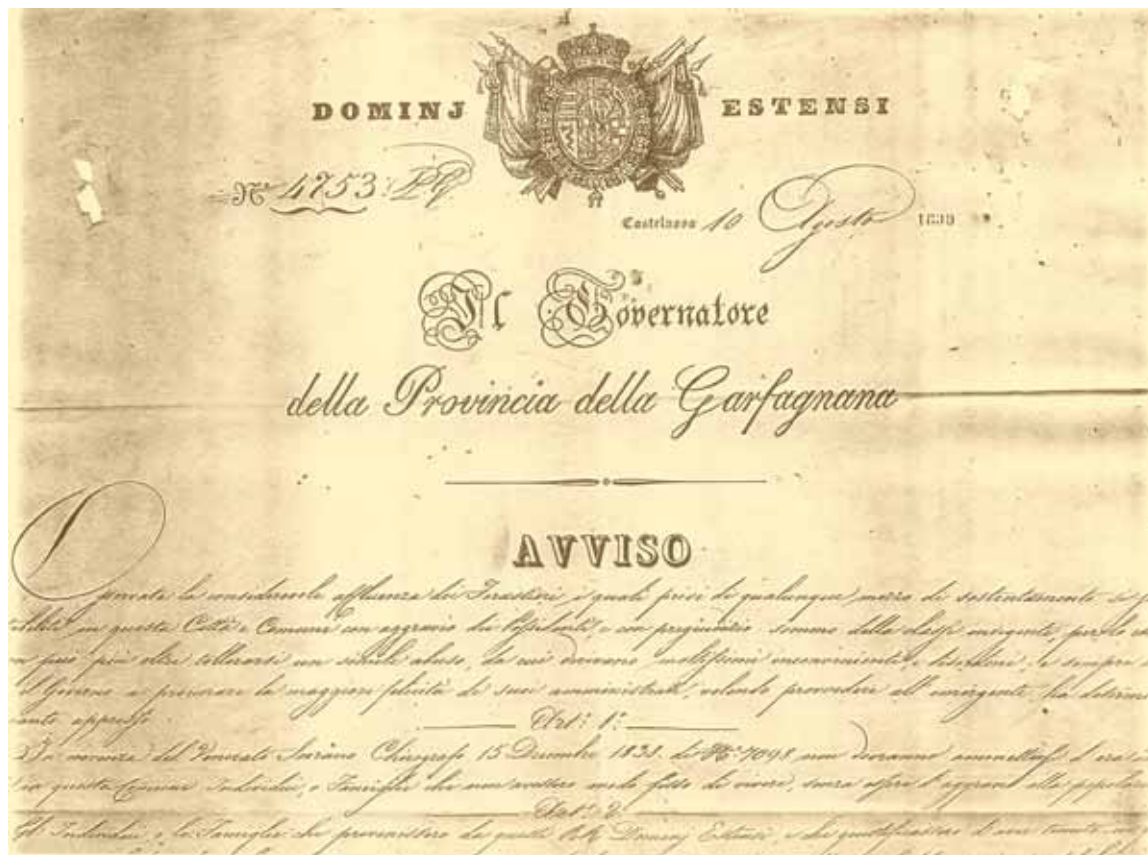 DOMINJ ESTENSI
N.º 4753
Castelnuovo 10 Agosto 1839
Il Governatore
della Provincia della Garfagnana
AVVISO
Osservata la considerevole affluenza dei Forastieri, i quali privi di qualunque mezzo di sostentamento si
in questa Città e Comune con aggravio dei Possidenti, e con pregiudizio sommo della classe indigente, perciò
può più oltre tollerarsi un simile abuso, da cui derivano moltissimi inconvenienti e disordini, e sempre
il Governo a procurare la maggiore felicità de suoi amministrati, volendo provvedere all'emergente, ha
appresso.
Art. 1.º
In del Venerato Sovrano Chirografo 15 Dicembre N.º 7098 non dovranno
in questa Comune Individui, o Famiglie che non avessero modo fisso di vivere, senza essere d'aggravio alla
Art. 2.º
Gl'Individui, e le Famiglie che provenissero da Dominj Estensi, e che giustificassero d'aver tenuto